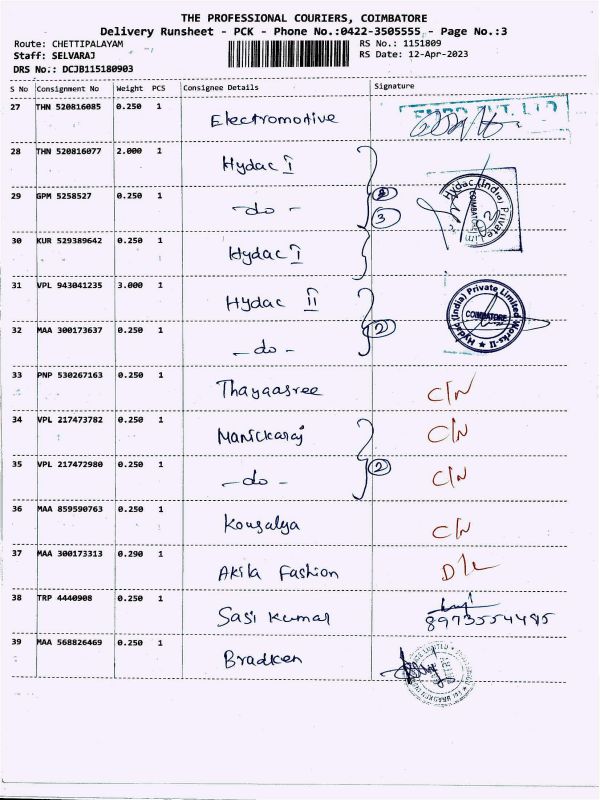 THE PROFESSIONAL COURIERS, COIMBATORE
Delivery Runsheet - PCK - Phone No.:0422-3505555 - Page No.:3
Route: CHETTIPALAYAM RS No.: 1151809
Staff: SELVARAJ RS Date: 12-Apr-2023
DRS No.: DCJB115180903
S No Consignment No Weight PCS Consignee Details Signature
27 THN 520816085 0.250 1 Electromotive PVT. LTD
28 THN 520816077 2.000 1 Hydac I
29 GPM 5258527 0.250 1 - do - 3
Hydac (India) Private COIMBATORE
30 KUR 529389642 0.250 1 Hydac I
31 VPL 943041235 3.000 1 Hydac II
Hydac (India) Private Limited Works-II ★ COIMBATORE
32 MAA 300173637 0.250 1 - do - 2
33 PNP 530267163 0.250 1 Thayaasree C/N
34 VPL 217473782 0.250 1 Manickaraj C/N
35 VPL 217472980 0.250 1 - do - 2 C/N
36 MAA 859590763 0.250 1 Kousalya C/N
37 MAA 300173313 0.290 1 Akila Fashion D/L
38 TRP 4440908 0.250 1 Sasi Kumar
8973554485
39 MAA 568826469 0.250 1 Bradken